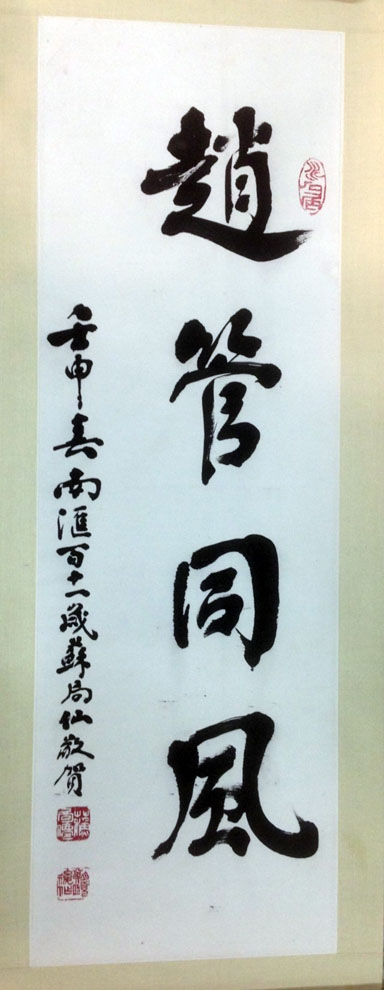 趙管同風
壬申春南滙百十一歲蘇局仙敬賀